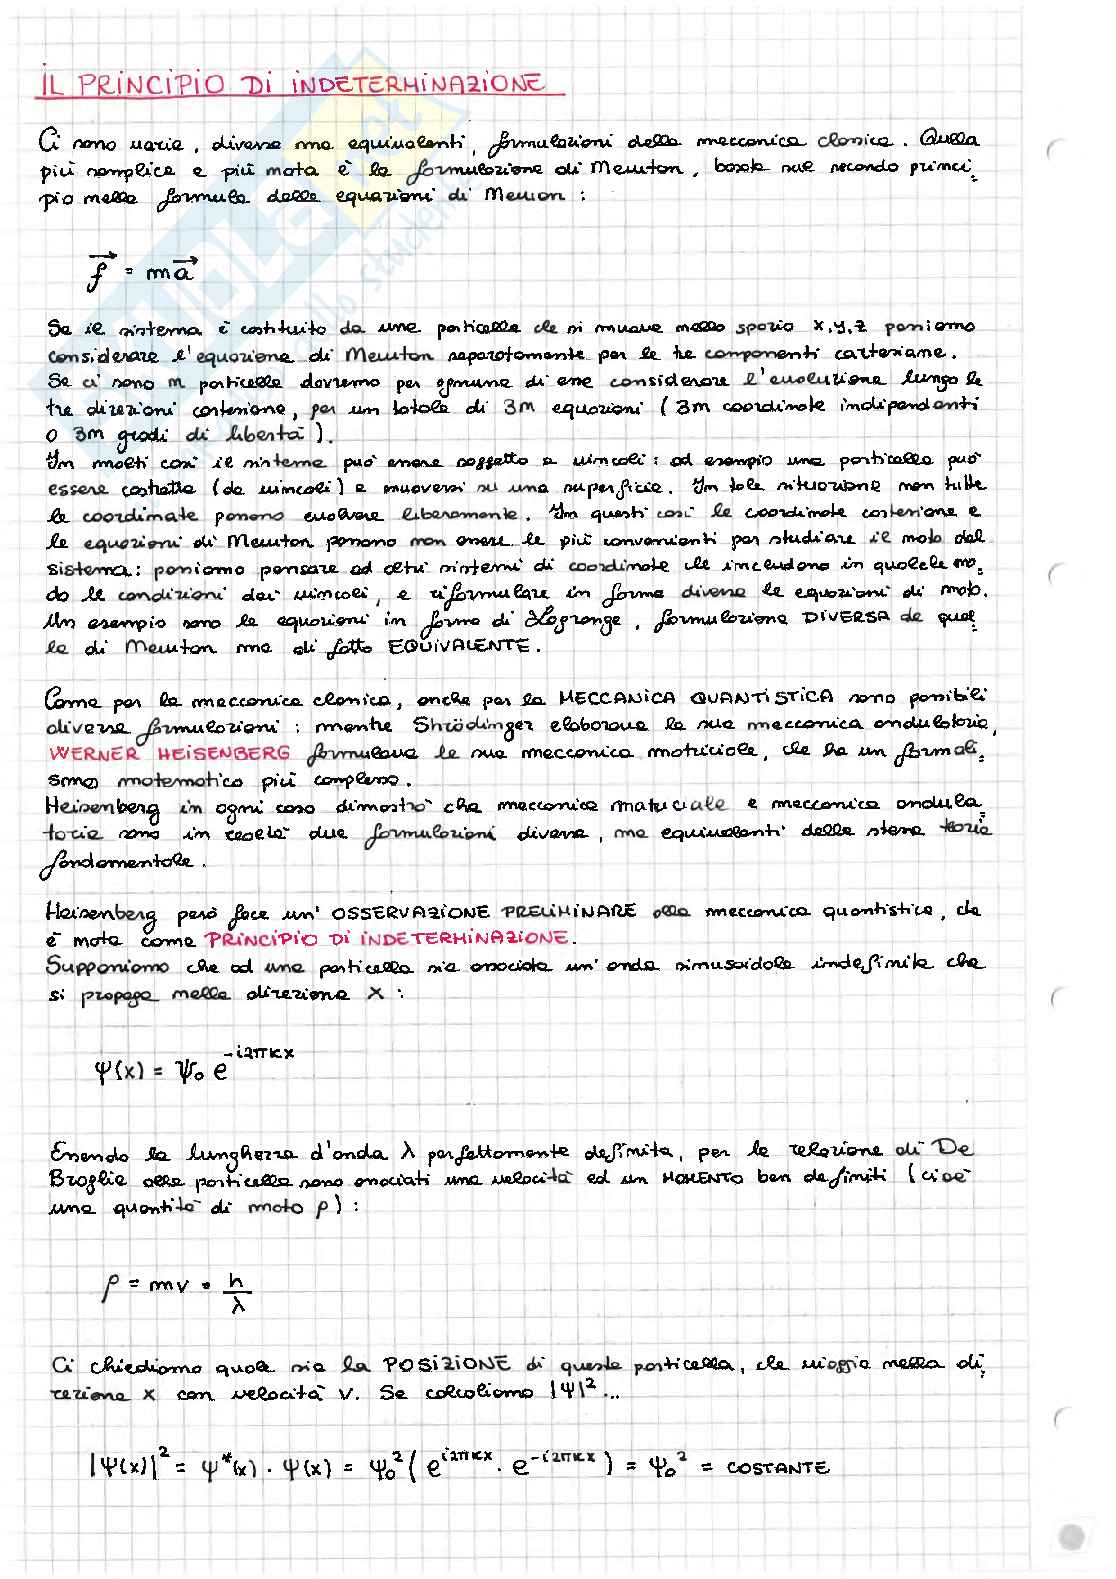 IL PRINCIPIO DI INDETERMINAZIONE
Ci sono varie, diverse ma equivalenti, formulazioni della meccanica classica. Quella
più semplice e più nota è la formulazione di Newton, basata sul secondo princi,
pio nella formula delle equazioni di Newton :
f⃗ = ma⃗
Se il sistema è costituito da una particella che si muove nello spazio x,y,z possiamo
considerare l'equazione di Newton separatamente per le tre componenti cartesiane.
Se ci sono n particelle dovremo per ognuna di esse considerare l'evoluzione lungo le
tre direzioni cartesiane, per un totale di 3n equazioni (3n coordinate indipendenti
o 3n gradi di libertà).
In molti casi il sistema può essere soggetto a vincoli: ad esempio una particella può
essere costretta (da vincoli) a muoversi su una superficie. In tale situazione non tutte
le coordinate possono evolvere liberamente. In questi casi le coordinate cartesiane e
le equazioni di Newton possono non essere le più convenienti per studiare il moto del
sistema: possiamo pensare ad altri sistemi di coordinate che includono in qualche mo,
do le condizioni dei vincoli, e riformulare in forma diversa le equazioni di moto.
Un esempio sono le equazioni in forma di Lagrange, formulazione DIVERSA da quel,
la di Newton ma di fatto EQUIVALENTE.
Come per la meccanica classica, anche per la MECCANICA QUANTISTICA sono possibili
diverse formulazioni : mentre Shrödinger elaborava la sua meccanica ondulatoria,
WERNER HEISENBERG formulava la sua meccanica matriciale, che ha un formali,
smo matematico più complesso.
Heisenberg in ogni caso dimostrò che meccanica matriciale e meccanica ondula,
toria sono in realtà due formulazioni diverse, ma equivalenti della stessa teoria
fondamentale.
Heisenberg però fece un' OSSERVAZIONE PRELIMINARE alla meccanica quantistica, che
è nota come PRINCIPIO DI INDETERMINAZIONE.
Supponiamo che ad una particella sia associata un'onda sinusoidale indefinita che
si propaga nella direzione x :
Ψ(x) = Ψ₀ e^(-i2πkx)
Essendo la lunghezza d'onda λ perfettamente definita, per la relazione di De
Broglie alla particella sono associati una velocità ed un MOMENTO ben definiti (cioè
una quantità di moto p) :
p = mv = h/λ
Ci chiediamo quale sia la POSIZIONE di questa particella, che viaggia nella di,
rezione x con velocità v. Se calcoliamo |Ψ|² ...
|Ψ(x)|² = Ψ*(x) · Ψ(x) = Ψ₀² ( e^(i2πkx) · e^(-i2πkx) ) = Ψ₀² = COSTANTE